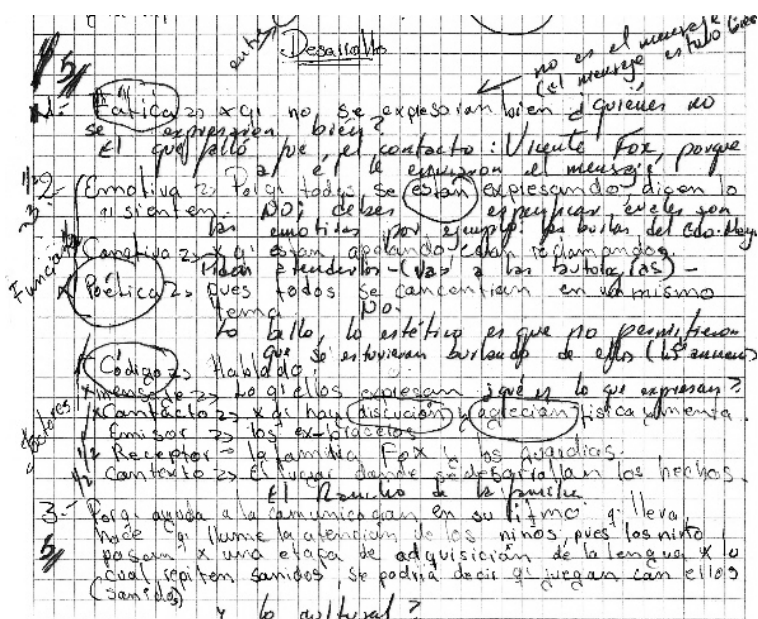 Desarrollo
no es el mensaje
(el mensaje estuvo bien
1.- Fática => x qi no se expresoran bien ¿quiénes no
se expresaron bien?
El que falló fue, el contacto: Vicente Fox, porque
a él le enviaron el mensaje
1/2 2- Emotiva => Porqi todos se están expresando, dicen lo
q sienten. NO; debes especificar cuáles son
las emotivas por ejemplo: las burlas del Cdo.
Conativa => x qi están apelando, están reclamando.
Piden atenderlos - (vas a las)
Poética => pues todos se concentran en un mismo
tema NO.
Lo bello, lo estético es que no permitieron
que se estuvieran burlando de ellos
Funciones
Código => Hablado.
x mensaje => Lo qi ellos expresan ¿qué es lo que expresan?
x Contacto => x qi hay discución y aglecian fisicamente.
Emisor => los ex-braceros
1/2 Receptor = la familia Fox y los guardias.
1/2 Contexto => El lugar donde se desarrollan los hechos.
El Rancho de la familia
factores
3.- Porqi ayuda a la comunicacan en su ritmo qi lleva,
hace qi llame la atención de los niños, pues los niño
pasan x una etapa de adquisición de la lengua x lo
cual repiten sonidos, se podría decir qi juegan con ellos
(sonidos)
y lo cultural?